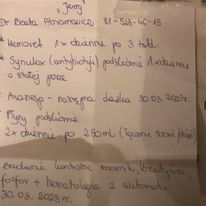 "Jerry"
Dr Beata Abramowicz 81-523-46-15
* Hemovet 1x dziennie po 3 tabl.
* Synulox (antybiotyk) podskórnie 1x dziennie
o stałej porze
* Aranesp - następna dawka 30.03.2023r.
* Płyny podskórnie
2x dziennie po 250ml (łącznie 500ml
Badanie kontrolne mocznik, kreatynina,
fosfor + hematologia z automatu
30.03.2023r.